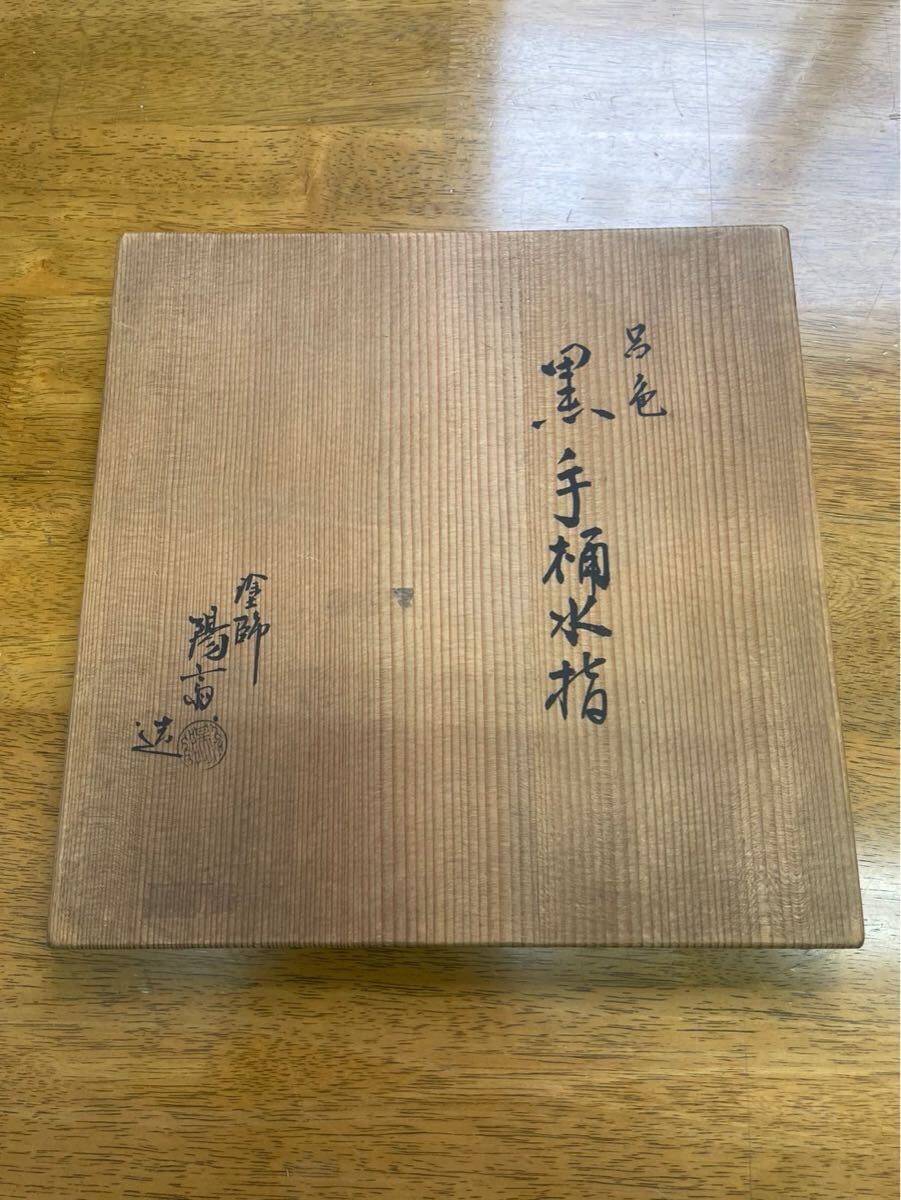 呂色
黒手桶水指
塗師
陽斎
造